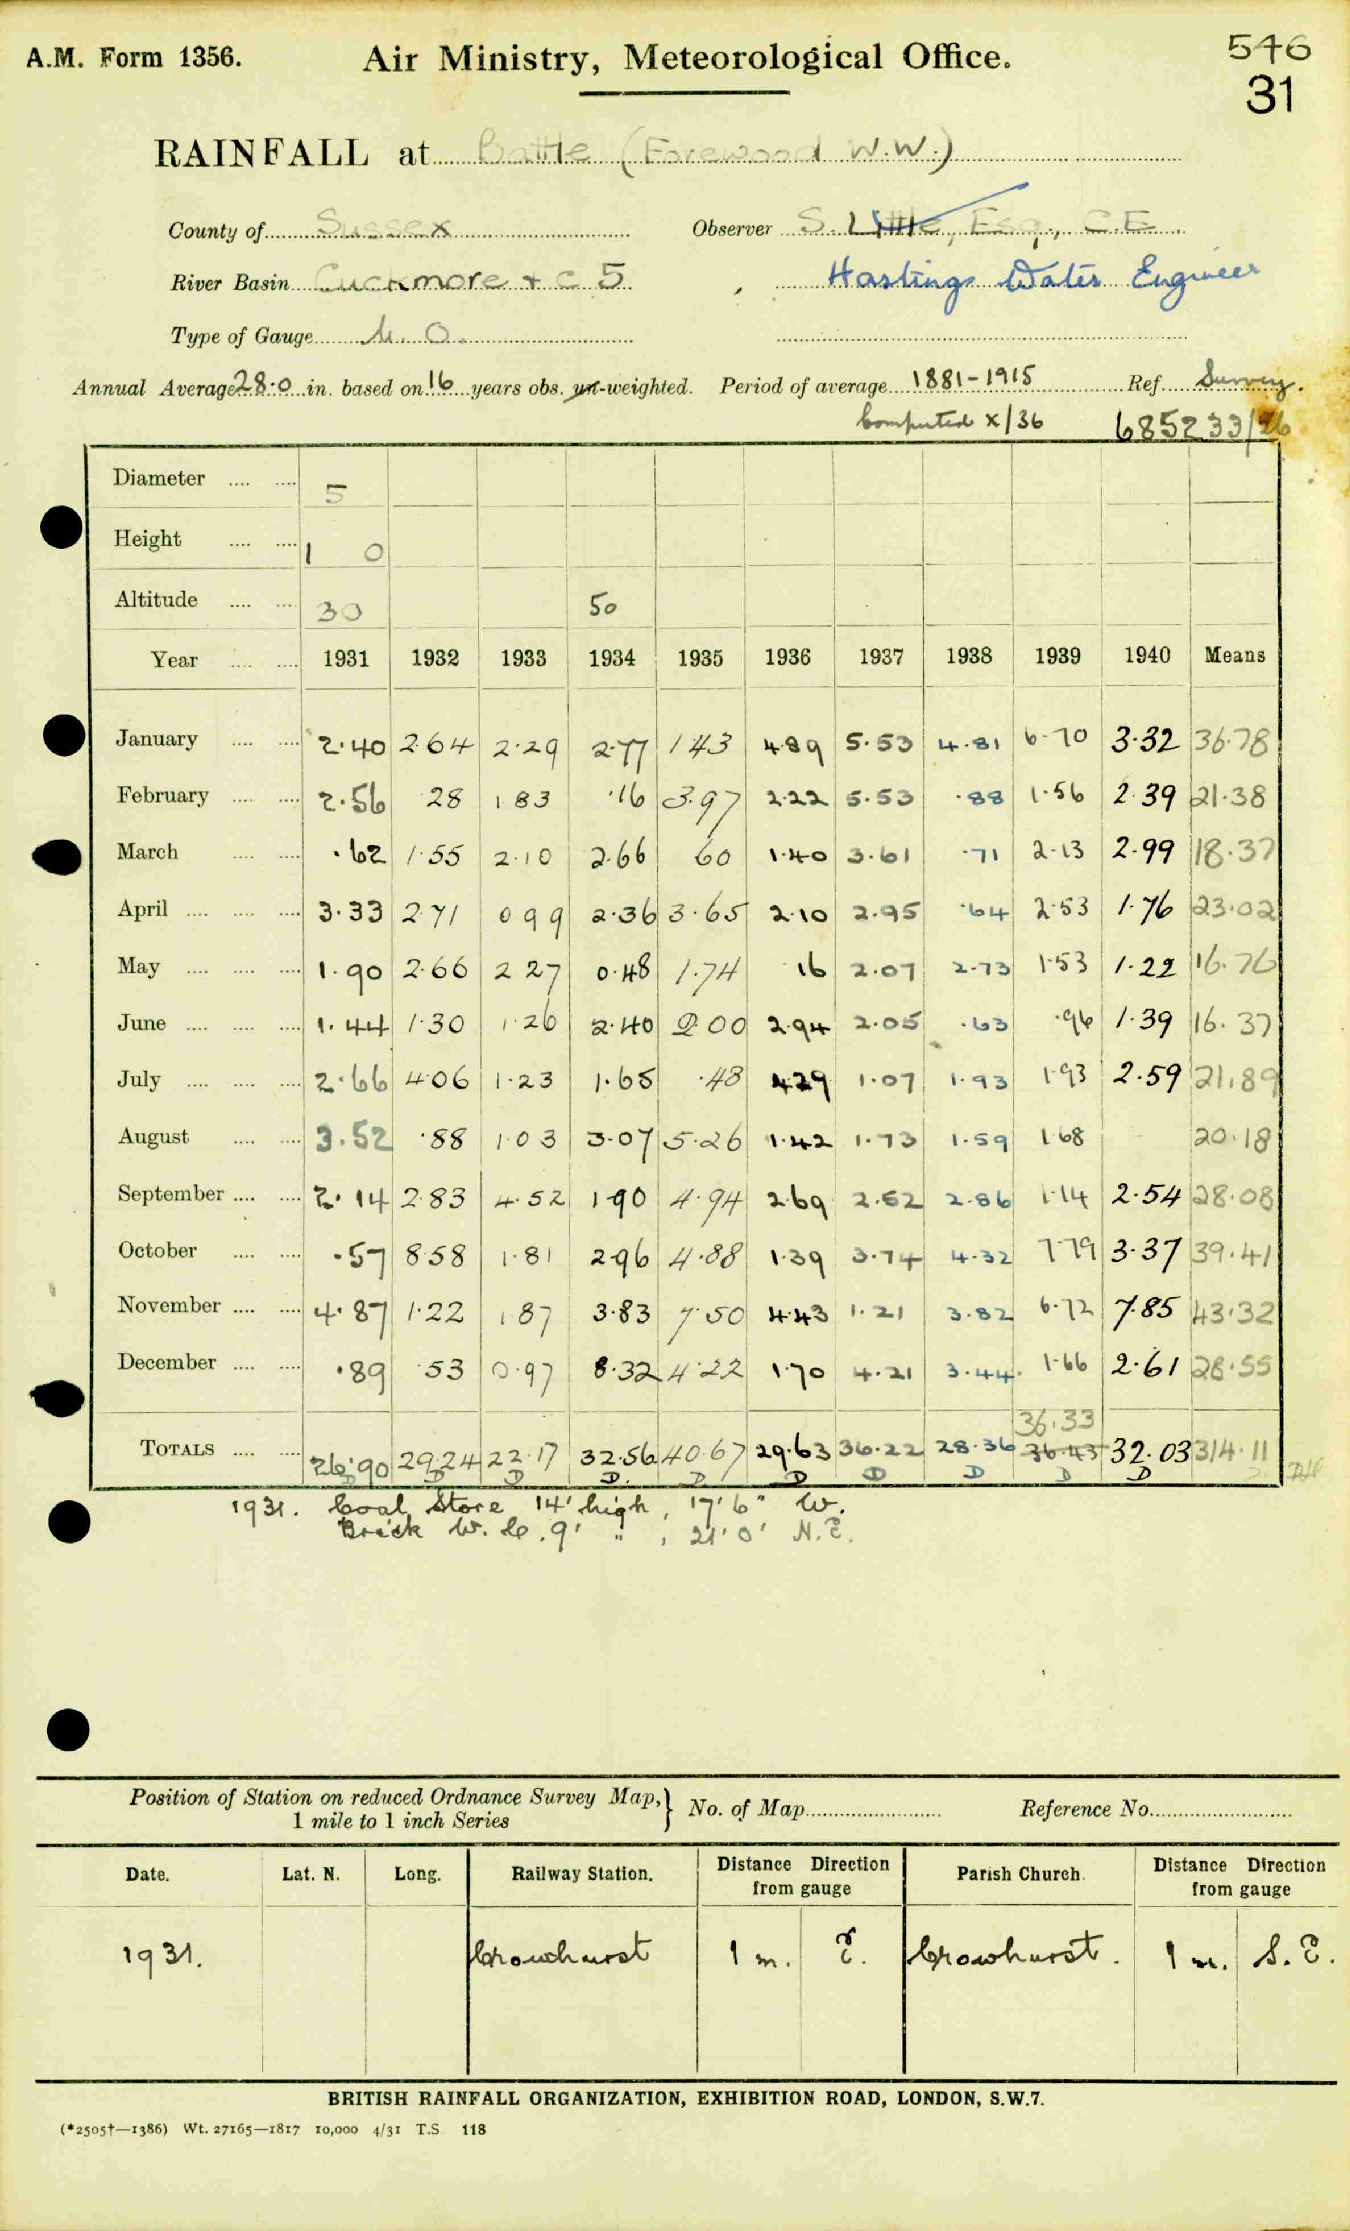 A.M. Form 1356. Air Ministry, Meteorological Office. 546
31
RAINFALL at Battle (Forewood W.W.)
County of Sussex Observer S. Little, Esq., C.E.
River Basin Cuckmore + C 5 Hastings Water Engineer
Type of Gauge M.O.
Annual Average 28.0 in. based on 16 years obs. un-weighted. Period of average 1881-1915 Ref. Survey.
Computed X/36 685233/26
Diameter 5
Height 1 0
Altitude 30 50
Year 1931 1932 1933 1934 1935 1936 1937 1938 1939 1940 Means
January 2.40 2.64 2.29 2.77 1.43 4.89 5.53 4.81 6.70 3.32 36.78
February 2.56 .28 1.83 .16 3.97 2.22 5.53 .88 1.56 2.39 21.38
March .62 1.55 2.10 2.66 60 1.40 3.61 .71 2.13 2.99 18.37
April 3.33 2.71 0 99 2.36 3.65 2.10 2.95 .64 2.53 1.76 23.02
May 1.90 2.66 2 27 0.48 1.74 16 2.07 2.73 1.53 1.22 16.76
June 1.44 1.30 1.26 2.40 2.00 2.94 2.05 .63 .96 1.39 16.37
July 2.66 4.06 1.23 1.65 .48 4.29 1.07 1.93 1.93 2.59 21.89
August 3.52 .88 1.03 3.07 5.26 1.42 1.73 1.59 1.68 20.18
September 2.14 2.83 4.52 1.90 4.94 2.69 2.52 2.86 1.14 2.54 28.08
October .57 8.58 1.81 2.96 4.88 1.39 3.74 4.32 7.79 3.37 39.41
November 4.87 1.22 1.87 3.83 7.50 4.43 1.21 3.82 6.72 7.85 43.32
December .89 .53 0.97 8.32 4.22 1.70 4.21 3.44 1.66 2.61 28.55
36.33
TOTALS 26.90 29.24 22.17 32.56 40.67 29.63 36.22 28.36 36.43 32.03 314.11
D D D D D D D D D
1931. Coal Store 14' high, 17'6" W.
Brick W.C. 9' " , 21'0' N.E.
Position of Station on reduced Ordnance Survey Map, } No. of Map Reference No.
1 mile to 1 inch Series
Date. Lat. N. Long. Railway Station. Distance Direction from gauge Parish Church. Distance Direction from gauge
1931. Crowhurst 1 m. E. Crowhurst. 1 m. S.E.
BRITISH RAINFALL ORGANIZATION, EXHIBITION ROAD, LONDON, S.W.7.
(*2505†—1386) Wt. 27165—1817 10,000 4/31 T.S. 118